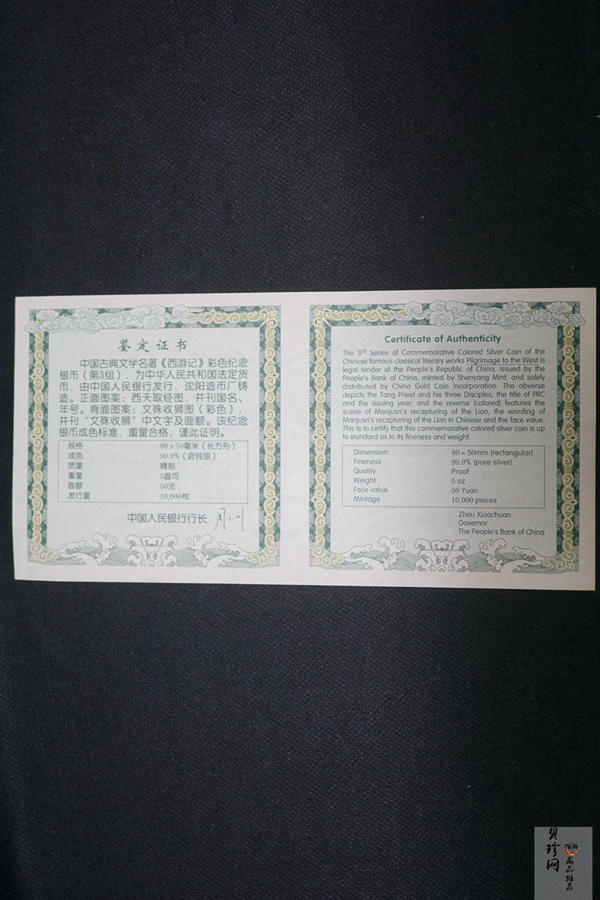 鉴定证书
中国古典文学名著《西游记》彩色纪念
银币（第3组），为中华人民共和国法定货
币，由中国人民银行发行，沈阳造币厂铸
造。正面图案：西天取经图，并刊国名、
年号。背面图案：文殊收狮图（彩色），
并刊“文殊收狮”中文字及面额。该纪念
银币成色标准，重量合格，谨此证明。
规格 80×50毫米（长方形）
成色 99.9%（含纯银）
质量 精制
重量 5盎司
面额 50元
发行量 10,000枚
中国人民银行行长
Certificate of Authenticity
The 3rd Series of Commemorative Colored Silver Coin of the
Chinese famous classical literary works Pilgrimage to the West is
legal tender of the People's Republic of China, issued by the
People's Bank of China, minted by Shenyang Mint, and solely
distributed by China Gold Coin Incorporation. The obverse
depicts the Tang Priest and his three Disciples, the title of PRC
and the issuing year; and the reverse (colored) features the
scene of Manjusri's recapturing of the Lion, the wording of
Manjusri's recapturing of the Lion in Chinese and the face value.
This is to certify that this commemorative colored silver coin is up
to standard as to its fineness and weight.
Dimension 80×50mm (rectangular)
Fineness 99.9% (pure silver)
Quality Proof
Weight 5 oz
Face value 50 Yuan
Mintage 10,000 pieces
Zhou Xiaochuan
Governor
The People's Bank of China
贝珍网